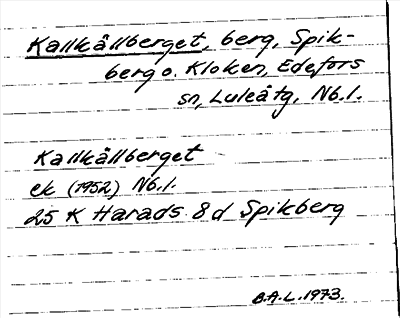 Kallkällberget, berg, Spik-
berg o. Kloken, Edefors
sn, Luleåtg, Nb.l.
Kallkällberget
ek (1952) Nb.l.
25 K Harads 8d Spikberg
B.A.L. 1973.